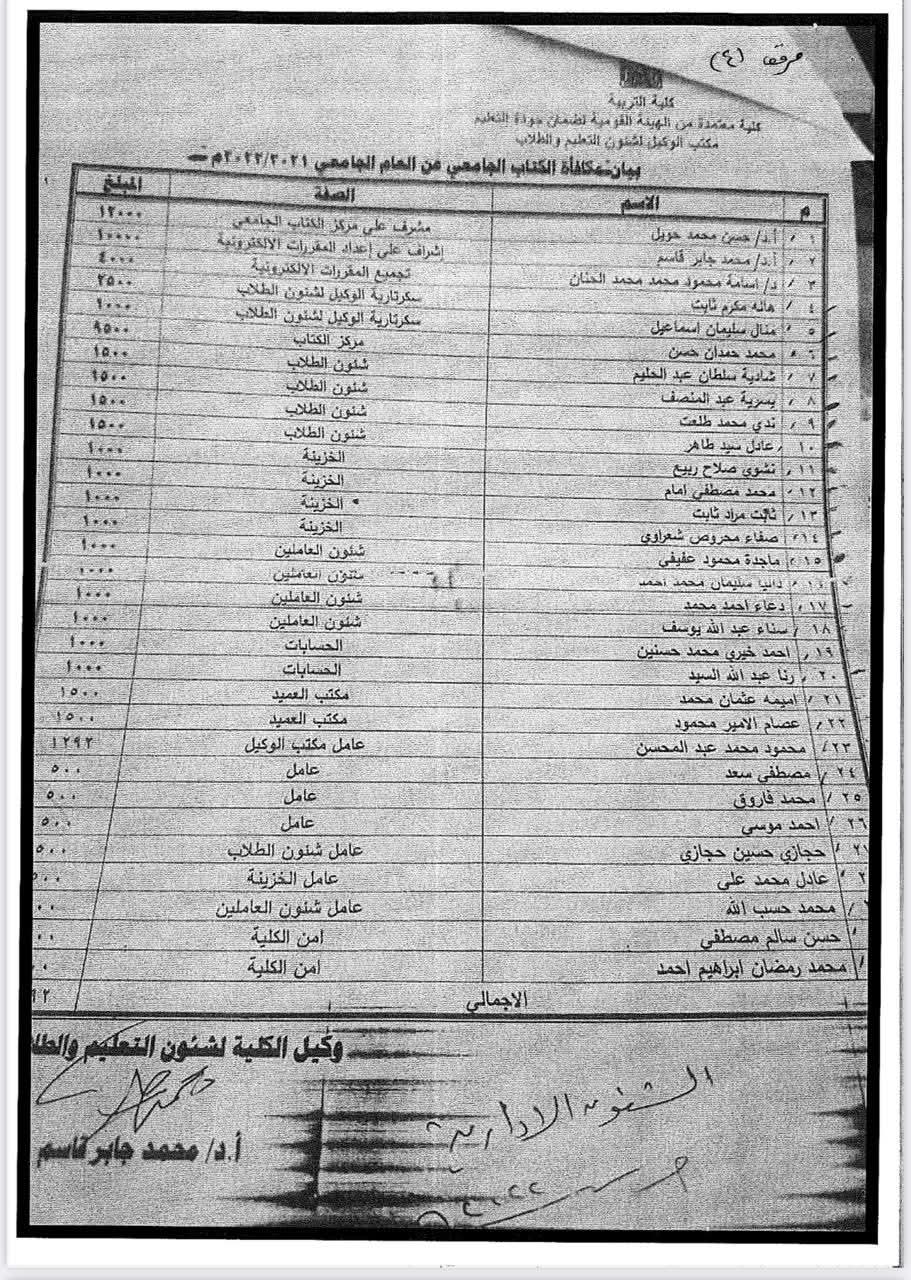 مرفق (٤)
كلية التربية
كلية معتمدة من الهيئة القومية لضمان جودة التعليم
مكتب الوكيل لشئون التعليم والطلاب
بيان مكافأة الكتاب الجامعي عن العام الجامعي ٢٠٢٢/٢٠٢١م
م الاسم الصفة المبلغ
١ أ.د/ حسن محمد حويل مشرف على مركز الكتاب الجامعي ١٢٠٠٠
٢ أ.د/ محمد جابر قاسم إشراف على إعداد المقررات الالكترونية ١٠٠٠٠
٣ د/ اسامة محمود محمد محمد الحنان تجميع المقررات الالكترونية ٤٠٠٠
٤ هاله مكرم ثابت سكرتارية الوكيل لشئون الطلاب ٢٥٠٠
٥ منال سليمان اسماعيل سكرتارية الوكيل لشئون الطلاب ١٠٠٠
٦ محمد حمدان حسن مركز الكتاب ٩٥٠٠
٧ شادية سلطان عبد الحليم شئون الطلاب ١٥٠٠
٨ يسرية عبد المنصف شئون الطلاب ١٥٠٠
٩ ندي محمد طلعت شئون الطلاب ١٥٠٠
١٠ عادل سيد طاهر شئون الطلاب ١٥٠٠
١١ نشوي صلاح ربيع الخزينة ١٠٠٠
١٢ محمد مصطفي امام الخزينة ١٠٠٠
١٣ ثالث مراد ثابت الخزينة ١٠٠٠
١٤ صفاء محروص شعراوي الخزينة ١٠٠٠
١٥ ماجدة محمود عفيفي شئون العاملين ١٠٠٠
١٦ دانيا سليمان محمد احمد شئون العاملين ١٠٠٠
١٧ دعاء احمد محمد شئون العاملين ١٠٠٠
١٨ سناء عبد الله يوسف شئون العاملين ١٠٠٠
١٩ احمد خيري محمد حسنين الحسابات ١٠٠٠
٢٠ رنا عبد الله السيد الحسابات ١٠٠٠
٢١ اميمه عثمان محمد مكتب العميد ١٥٠٠
٢٢ عصام الامير محمود مكتب العميد ١٥٠٠
٢٣ محمود محمد عبد المحسن عامل مكتب الوكيل ١٢٩٢
٢٤ مصطفي سعد عامل ٥٠٠
٢٥ محمد فاروق عامل ٥٠٠
٢٦ احمد موسي عامل ٥٠٠
حجازي حسين حجازي عامل شئون الطلاب ٥٠٠
عادل محمد على عامل الخزينة ٠٠
محمد حسب الله عامل شئون العاملين ٠٠
حسن سالم مصطفي امن الكلية ٠٠
محمد رمضان ابراهيم احمد امن الكلية ٠
الاجمالي ٩٢
وكيل الكلية لشئون التعليم والطلا
الشئون الادارية
أ.د/ محمد جابر قاسم